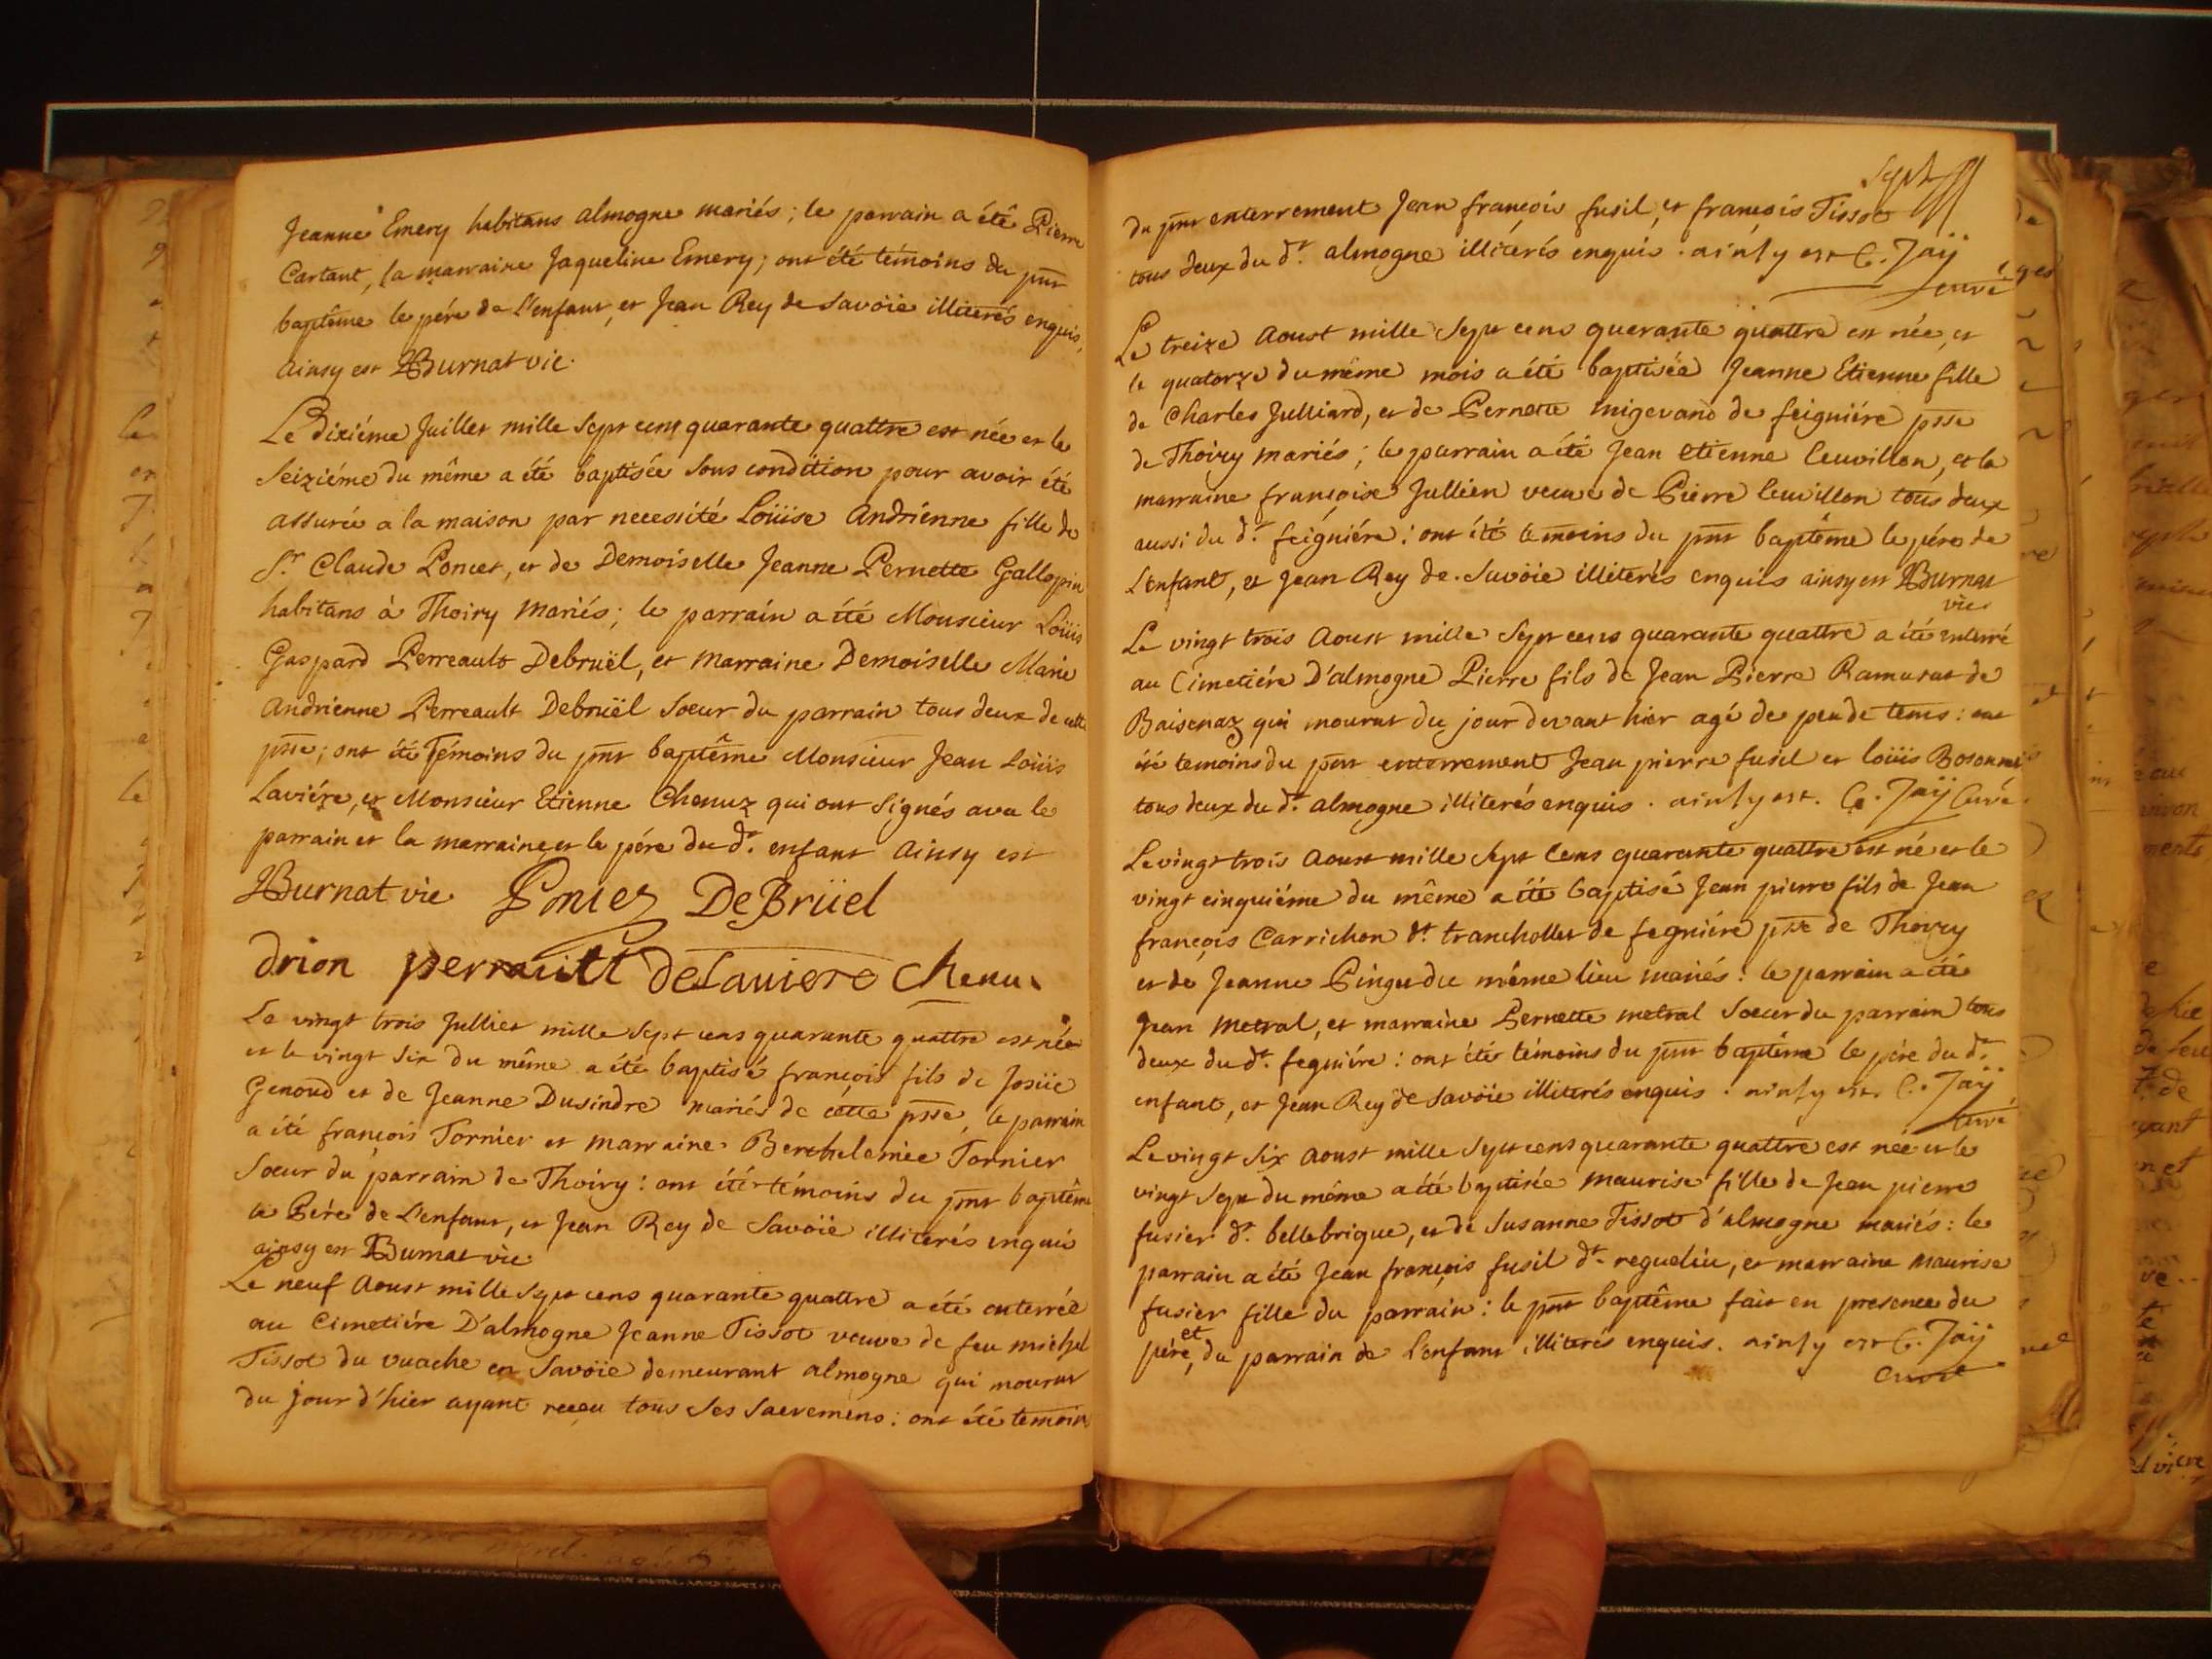 Jeanne Emery habitans almogne mariés; le parrain a été Pierre
Cartant, la marraine Jaqueline Emery; ont été témoins du pnt
baptême le pére de l'enfant, et Jean Rey de Savoïe illiterés enquis,
ainsy est Burnat vic.
Le dixiéme Juillet mille sept cent quarante quattre est née et le
seiziéme du même a été baptisée sous condition pour avoir été
assurée a la maison par necessité Loüise Andrienne fille de
Sr. Claude Poncet, et de Demoiselle Jeanne Pernette Gallopin
habitans à Thoiry mariés; le parrain a été Monsieur Loüis
Gaspard Perreault Debruël, et marraine Demoiselle Marie
Andrienne Perreault Debruël soeur du parrain tous deux de cette
psse; ont été témoins du pnt baptême Monsieur Jean Loüis
Laviére, et Monsieur Etienne Chenuz qui ont signés avec le
parrain et la marraine et le pére du dt. enfant ainsy est
Burnat vic Poncez DeBrüel
drion perrault deLaviere Chenu
Le vingt trois Julliet mille sept cens quarante quattre est née
et le vingt six du même a été baptisé françois fils de Josüé
Genoud et de Jeanne Dusindre mariés de cette psse, le parrain
a été françois Tornier et marraine Berthelemie Tornier
soeur du parrain de Thoiry: ont été témoins du pnt baptême
le Pére de l'enfant, et Jean Rey de Savoïe illiterés enquis
ainsy est Burnat vic
Le neuf Aoust mille sept cens quarante quattre a été enterrée
au Cimetiére D'almogne Jeanne Tissot veuve de feu michel
Tissot du vuache en Savoïe demeurant almogne qui mourut
du jour d'hier ayant receu tous ses sacremens: ont été temoins
sept
du pnt enterrement Jean françois fusil, et françois Tissot
tous deux du dt. almogne illiterés enquis. ainsy est C. Jaÿ
curé
Le treize Aoust mille sept cens querante quattre est née, et
le quatorze du même mois a été baptisée Jeanne Etienne fille
de Charles Julliard, et de Pernette migevand de feigniére psse
de Thoiry mariés; le parrain a été Jean etienne leuvillon, et la
marraine françoise Jullien veuve de Pierre leuvillon tous deux
aussi du dt. feigniére: ont été temoins du pnt baptême le pére de
L'enfant, et Jean Rey de Savoïe illiterés enquis ainsy est Burnat
vic
Le vingt trois Aoust mille sept cens quarante quattre a été enterré
au Cimetiére D'almogne Pierre fils de Jean Pierre Ramusat de
Baisenaz qui mourut du jour devant hier agé de peu de tems: ont
été temoins du pnt enterrement Jean pierre fusil et loüis Bosonnet
tous deux du dt. almogne illiterés enquis. ainsy est. C. Jaÿ Curé.
Le vingt trois Aoust mille sept Cens quarante quattre est né et le
vingt cinquiéme du même a été baptisé Jean pierre fils de Jean
françois Carrichon dt. trancholler de fegniére psse de Thoiry
et de Jeanne Pinget du même lieu mariés: le parrain a été
Jean Metral, et marraine Pernette metral soeur du parrain tous
deux du dt. fegniére: ont été témoins du pnt baptême le pére du dt.
enfant, et Jean Rey de Savoïe illiterés enquis. ainsy est. C. Jaÿ
curé
Le vingt six Aoust mille sept cens quarante quattre est née et le
vingt sept du même a été baptisée maurise fille de Jean pierre
fusier dt. bellebrique, et de Susanne Tissot d'almogne mariés: le
parrain a été Jean françois fusil dt. regueliu, et marraine maurise
fusier fille du parrain: le pnt baptême fait en presence du
pére, et du parrain de l'enfant illiterés enquis. ainsy est C. Jaÿ
Curé